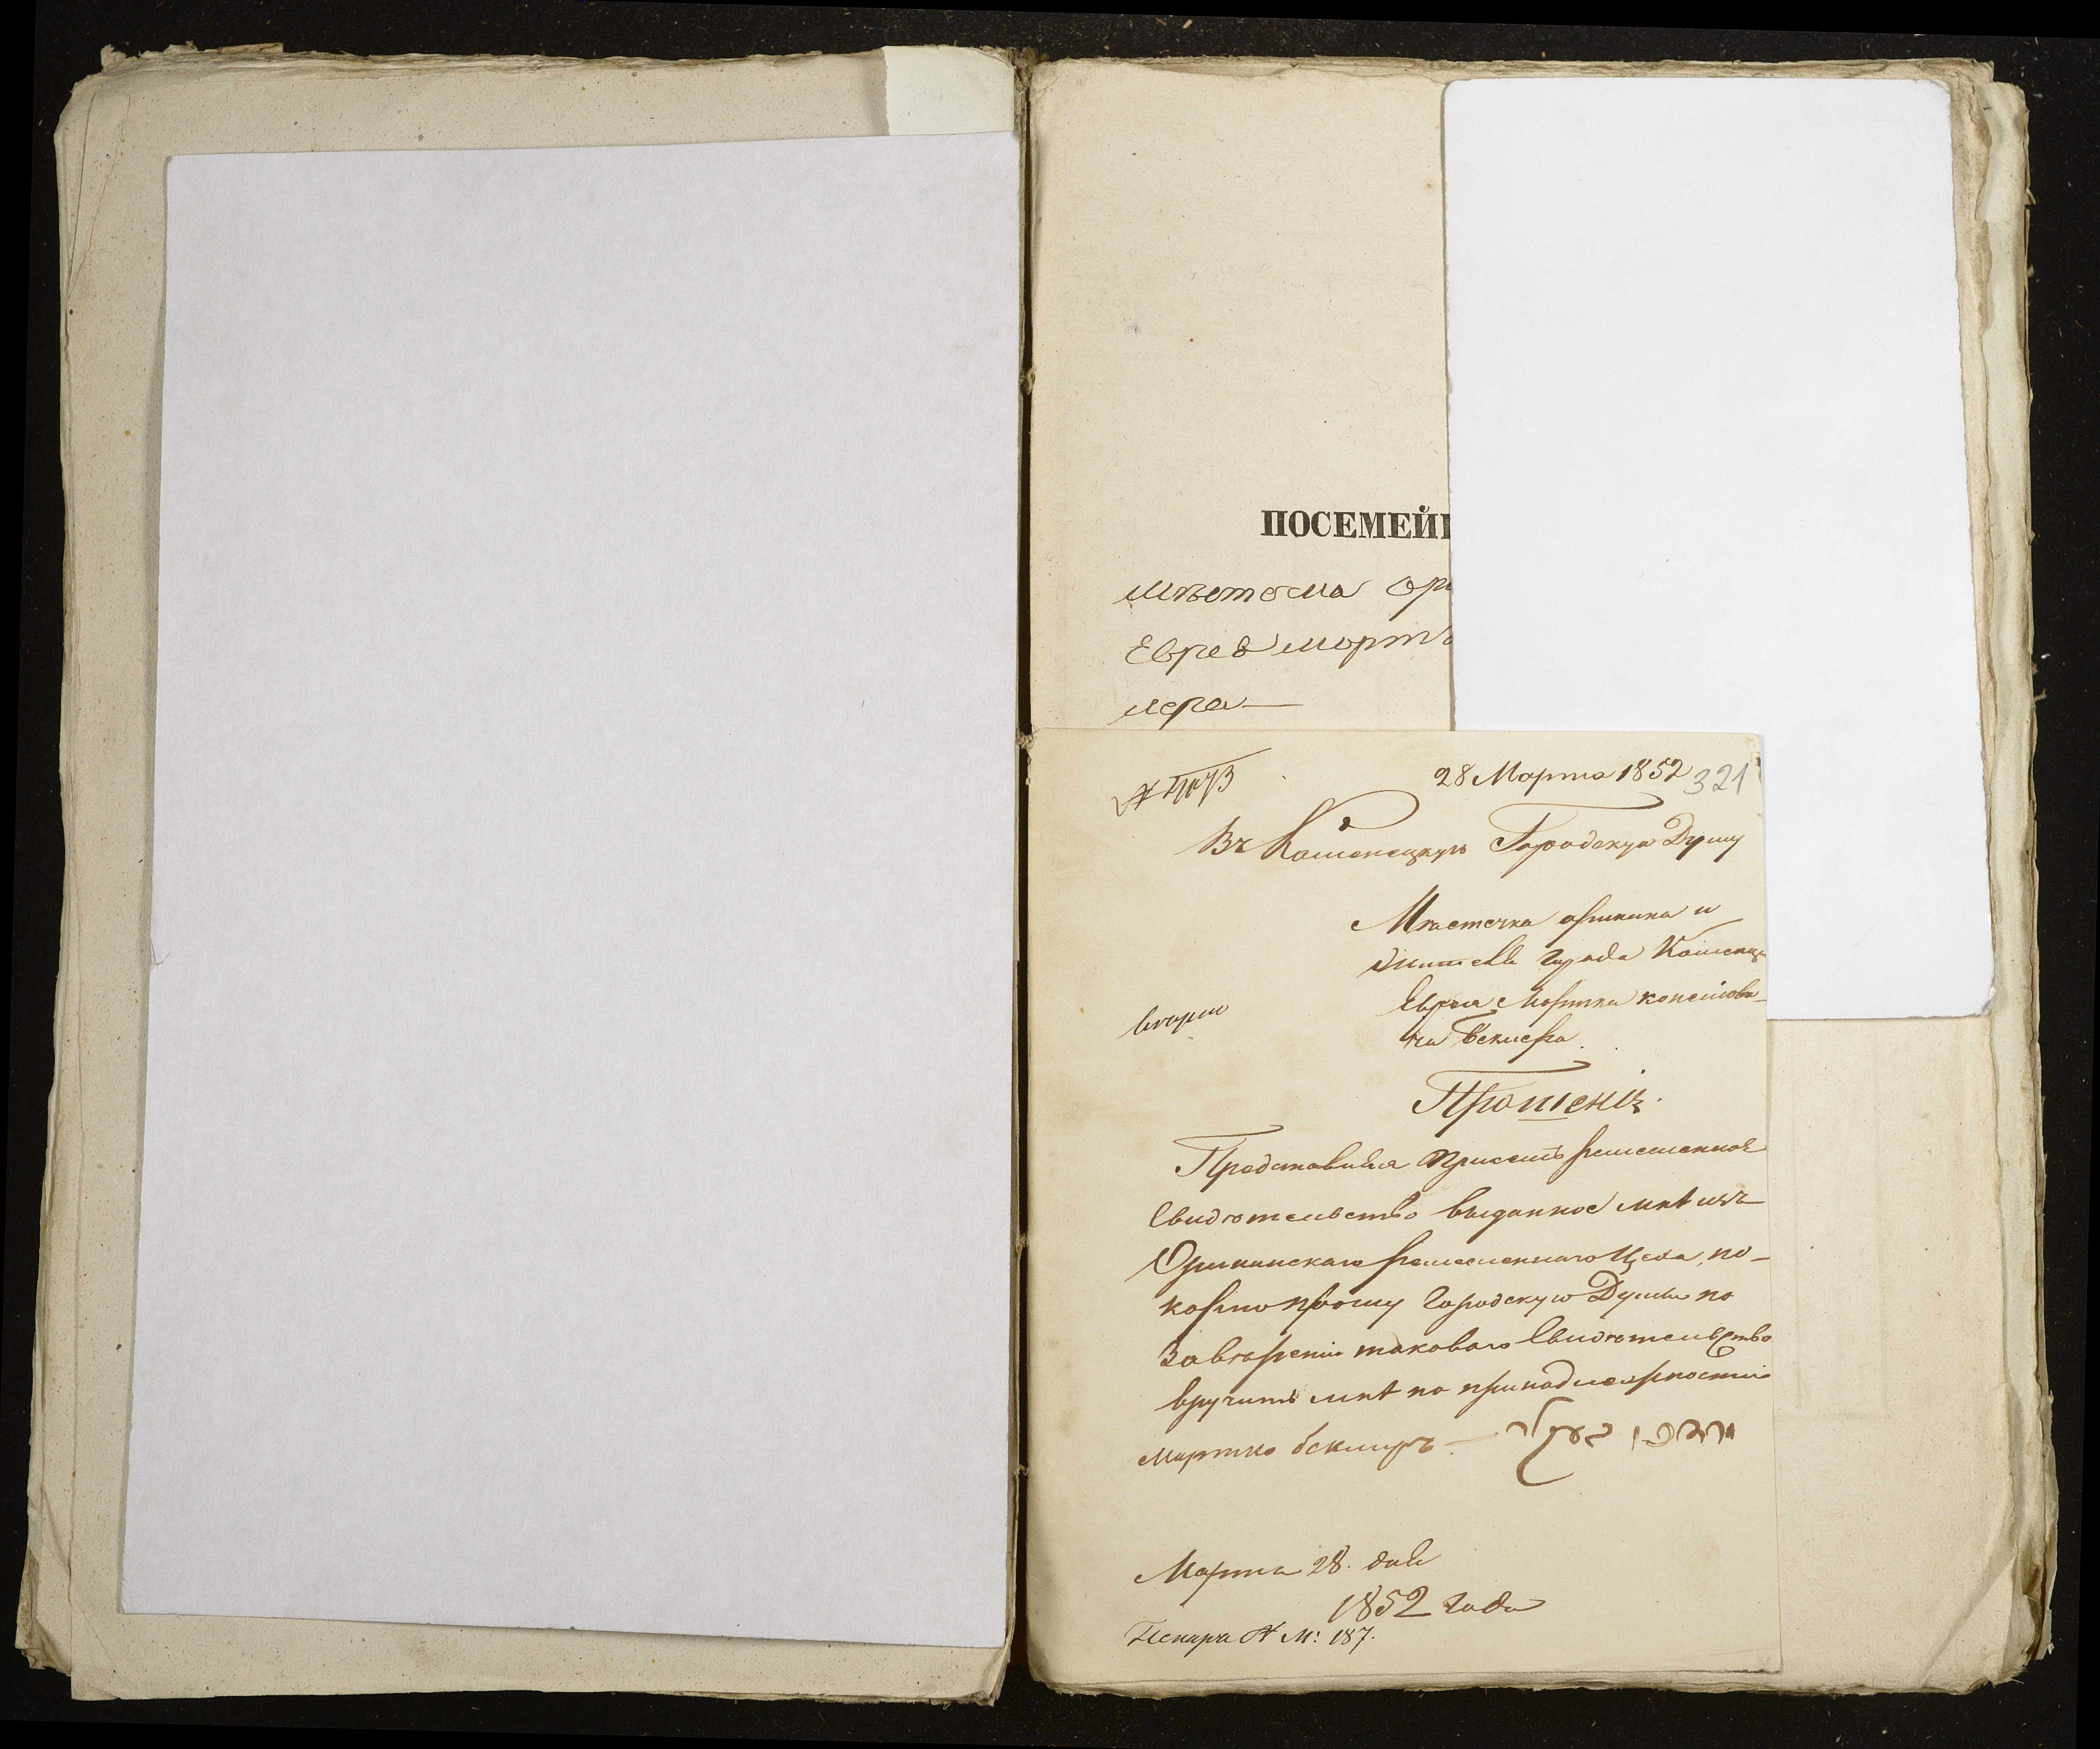 ПОСЕМЕЙ
мѣстечка Ори
Еврея Мортк
лера
28 Марта 1852
321
Въ Каменецкую Городскую Думу
Мѣстечка Оринина и
жителя города Каменца
Еврея Мортка
ча Беклера
Прошеніе
Представляя присемъ ремесленное
Свидѣтельство выданное мнѣ изъ
Орининскаго ремесленнаго Цеха, по-
корно прошу Городскую Думу по
Завѣреніи таковаго Свидѣтельство
вручить мнѣ по принадлежности
Мортко Беклеръ —
Марта 28. дня
1852 года
187.